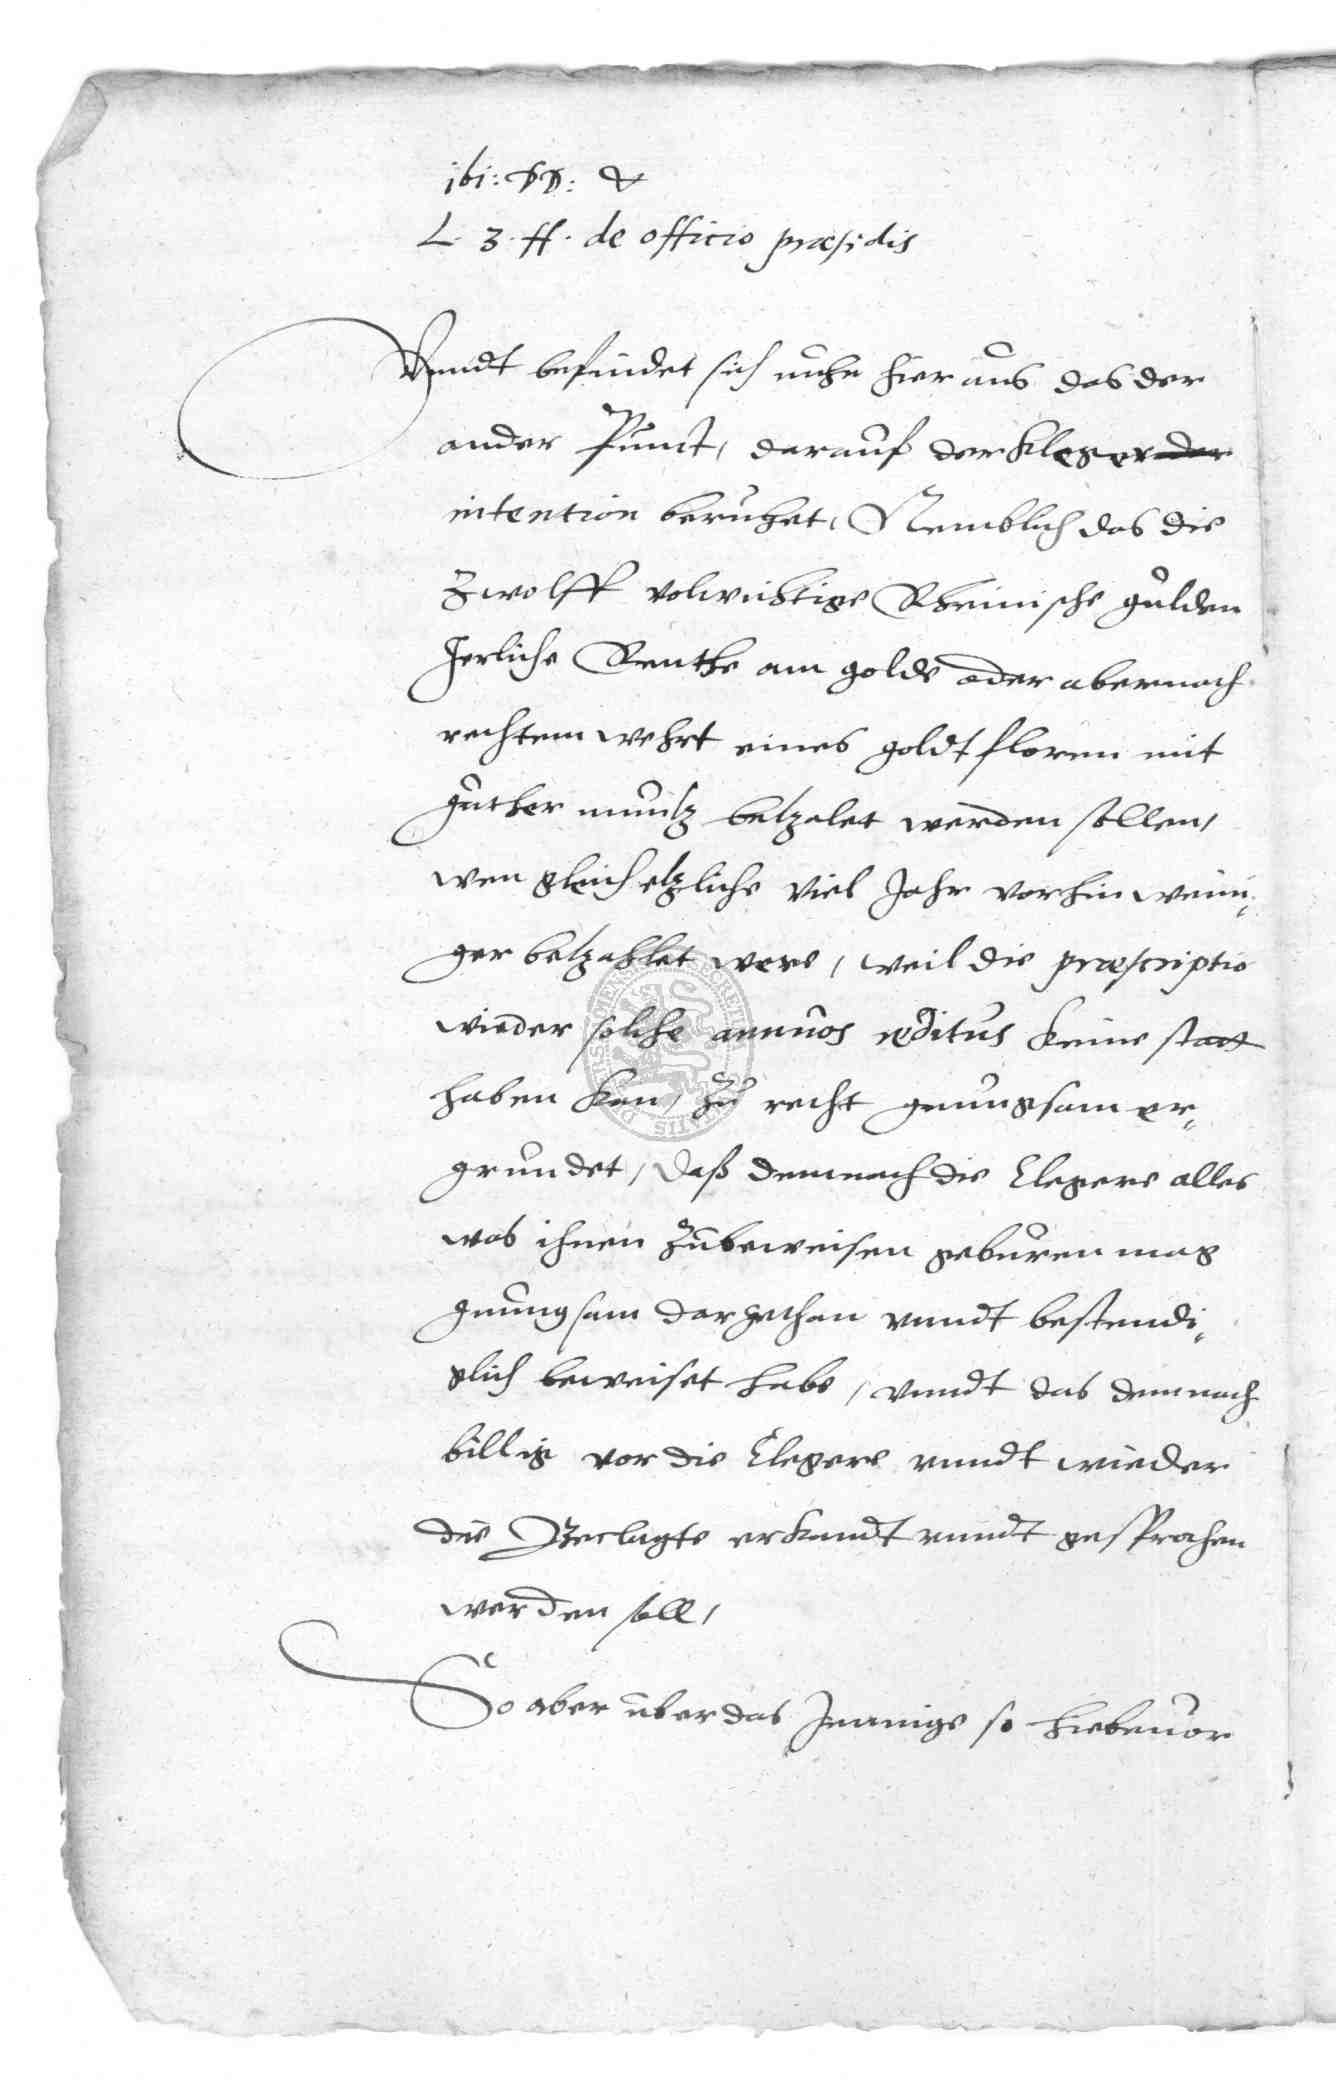 ibi: DD: &
L. 3. ff. de officio præsidis
Vnndt befindet sich nuhn hieraus das der
ander Punct, darauf der Kleger der
intention beruhet, Nemblich das die
Zwolff volwichtige Rheinische gulden
Jerliche Renthe am golde oder aber nach
rechtem wehrt eines goldtfloren mit
guther muntz betzalet werden sollen,
wen gleich etzliche viel Jahr vorhin weini„
ger betzahlet were, weil die præscriptio
wieder solche annuos reditus keine statt
haben kan, zu recht gnungsam er„
grundet, daß demnach die Clegere alles
was ihnen zubeweisen geburen mag
gnungsam dargethan vnndt bestendi„
glich beweiset habe, vnndt das demnach
billig vor die Clegere vnndt wieder
die Beclagte erkandt vnndt gesprochen
werden soll,
So aber uber das Jennige so hiebeuor